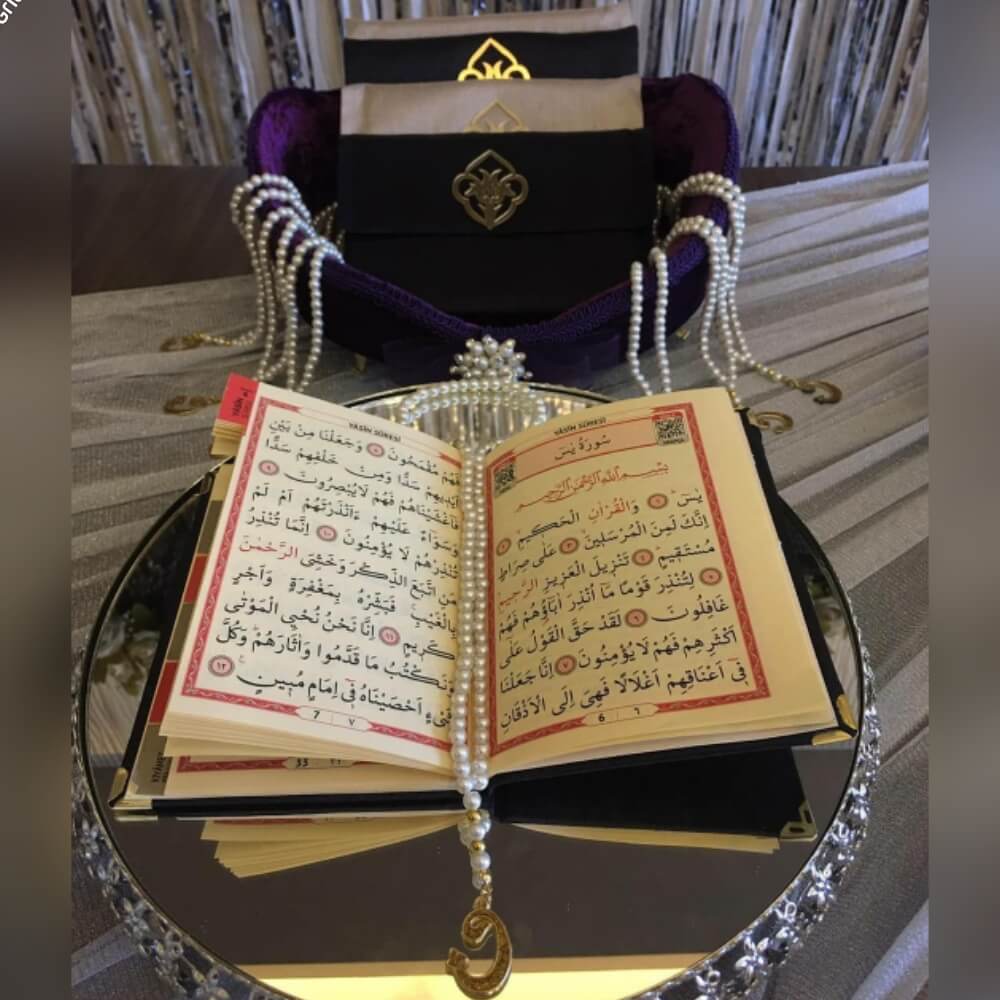 YÂSÎN SÛRESİ
سُورَةُ يٰسٓ
بِسْمِ اللّٰهِ الرَّحْمٰنِ الرَّحِيمِ
يٰسٓ ١ وَالْقُرْاٰنِ الْحَكِيمِ ٢
اِنَّكَ لَمِنَ الْمُرْسَلِينَ ٣ عَلٰى صِرَاطٍ
مُسْتَقِيمٍ ٤ تَنْزِيلَ الْعَزِيزِ الرَّحِيمِ
٥ لِتُنْذِرَ قَوْمًا مَٓا اُنْذِرَ اٰبَٓاؤُهُمْ فَهُمْ
غَافِلُونَ ٦ لَقَدْ حَقَّ الْقَوْلُ عَلٰٓى
اَكْثَرِهِمْ فَهُمْ لَا يُؤْمِنُونَ ٧ اِنَّا جَعَلْنَا
فِٓى اَعْنَاقِهِمْ اَغْلَالًا فَهِىَ اِلَى الْاَذْقَانِ
6 | ٦
YÂSÎN SÛRESİ
فَهُمْ مُقْمَحُونَ ٨ وَجَعَلْنَا مِنْ بَيْنِ
اَيْدِيهِمْ سَدًّا وَمِنْ خَلْفِهِمْ سَدًّا
فَاَغْشَيْنَاهُمْ فَهُمْ لَا يُبْصِرُونَ ٩
وَسَوَٓاءٌ عَلَيْهِمْ ءَاَنْذَرْتَهُمْ اَمْ لَمْ
تُنْذِرْهُمْ لَا يُؤْمِنُونَ ١٠ اِنَّمَا تُنْذِرُ
مَنِ اتَّبَعَ الذِّكْرَ وَخَشِىَ الرَّحْمٰنَ
بِالْغَيْبِ فَبَشِّرْهُ بِمَغْفِرَةٍ وَاَجْرٍ
كَرِيمٍ ١١ اِنَّا نَحْنُ نُحْيِى الْمَوْتٰى
وَنَكْتُبُ مَا قَدَّمُوا وَاٰثَارَهُمْ وَكُلَّ
شَىْءٍ اَحْصَيْنَاهُ فِٓى اِمَامٍ مُبِينٍ ١٢
7 | ٧
33